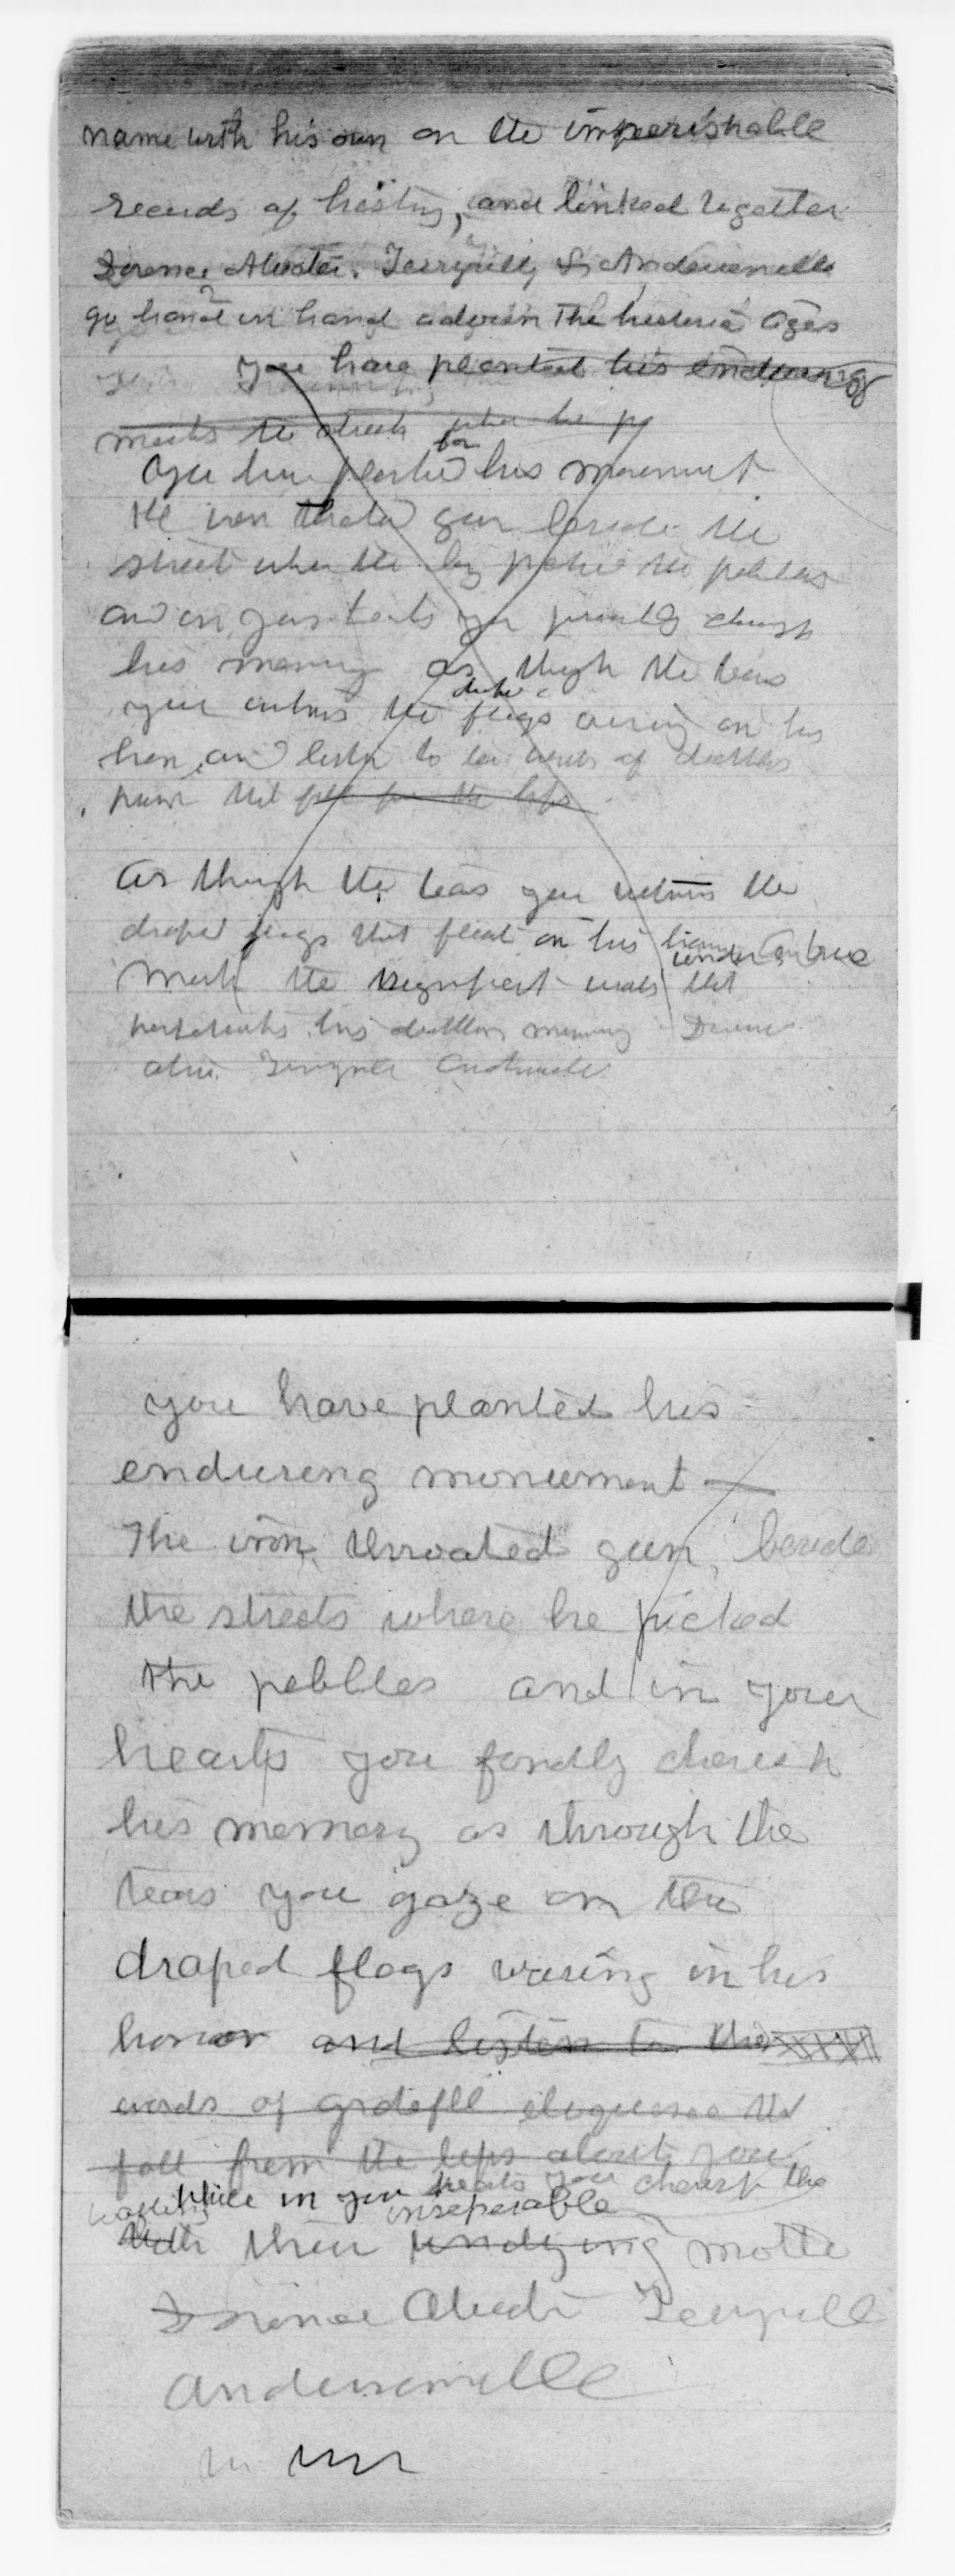 name with his own on the imperishable
records of history, and linked together
Dorence Atwater. Terryville & Andersonville
go hand in hand adown The historic Ages
you have planted his enduring
meets the streets where he
you have planted for his monument
The iron throated gun beside the
street where the boy picked the pebbles
and in your hearts you proudly cherish
his memory as though the tears
you witness the draped flags waving on his
honor, and listen to the words of deathless
praise that fall from the lips
As through the tears you witness the
draped flags that float on his
Mark the magnificent that
his deathless memory Dorence
Terryville Andersonville
you have planted his
enduring monument —
The iron throated gun, beside
the streets where he picked
the pebbles and in your
hearts you fondly cherish
his memory as through the
tears you gaze on the
draped flags waving in his
honor and listen to the
words of gratefll eloquence that
fall from the lips about you
While in your hearts you cherish the
inseperable
With their undying motto
Dorence Atwater Terryville
Andersonville